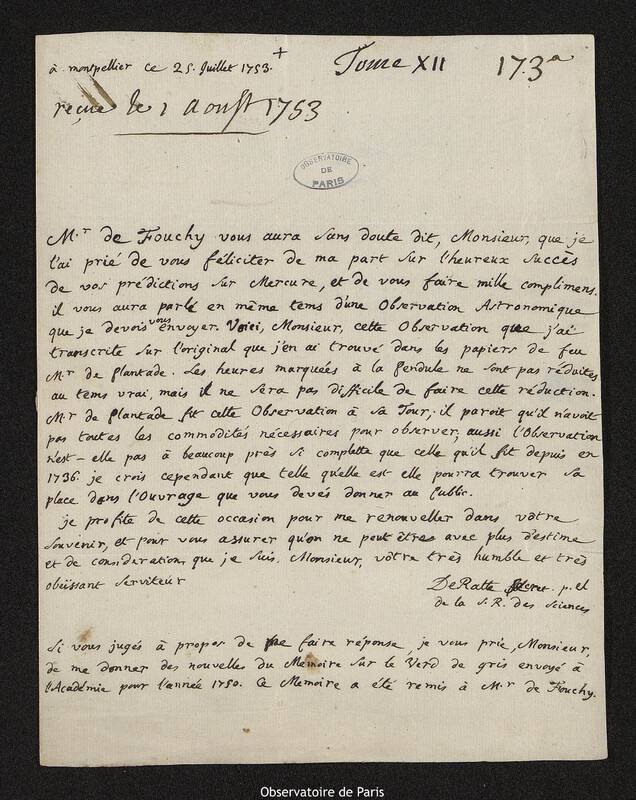 à montpellier ce 25. Juillet 1753. +
Tome XII 173a
reçue le 1 aoust 1753
OBSERVATOIRE
DE
PARIS
M.r de Fouchy vous aura sans doute dit, Monsieur, que je
l'ai prié de vous féliciter de ma part sur l'heureux succès
de vos prédictions sur Mercure, et de vous faire mille complimens.
il vous aura parlé en même tems d'une Observation Astronomique
que je devois vous envoyer. Voici, Monsieur, cette Observation que j'ai
transcrite sur l'original que j'en ai trouvé dans les papiers de feu
M.r de Plantade. Les heures marquées à la Pendule ne sont pas réduites
au tems vrai, mais il ne sera pas difficile de faire cette réduction.
M.r de Plantade fit cette Observation à sa Tour; il paroit qu'il n'avoit
pas toutes les commodités nécessaires pour observer; aussi l'Observation
n'est-elle pas à beaucoup près si complette que celle qu'il fit depuis en
1736. je crois cependant que telle qu'elle est elle pourra trouver sa
place dans l'Ouvrage que vous devés donner au Public.
je profite de cette occasion pour me renouveller dans vôtre
souvenir, et pour vous assurer qu'on ne peut être avec plus d'estime
et de consideration que je suis. Monsieur, vôtre très humble et très
obeissant serviteur
DeRatte Secret. p. el
de la S. R. des Sciences
Si vous jugés à propos de me faire réponse, je vous prie, Monsieur,
de me donner des nouvelles du Memoire sur le Verd de gris envoyé à
l'Académie pour l'année 1750. Ce Memoire a été remis à M.r de Fouchy.
Observatoire de Paris